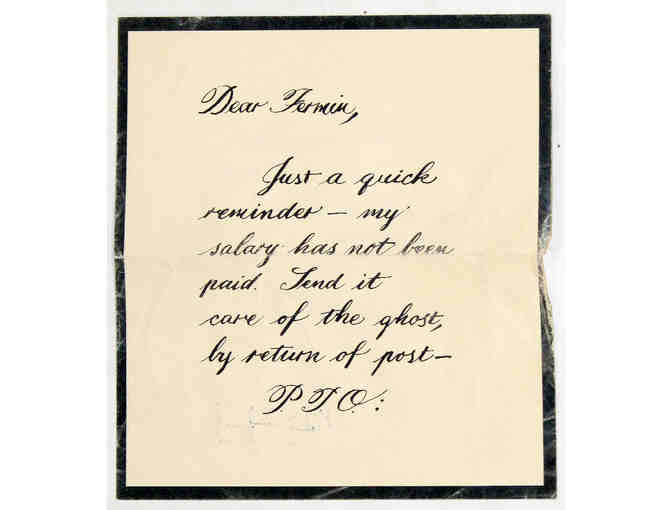 Dear Fermin,
Just a quick
reminder – my
salary has not been
paid. Send it
care of the ghost,
by return of post –
P.T.O: